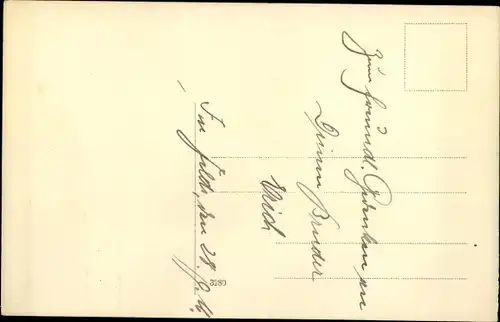 Zum freundl. Gedenken an
Deinen Bruder
Erich
Im Felde, den 28.
3180